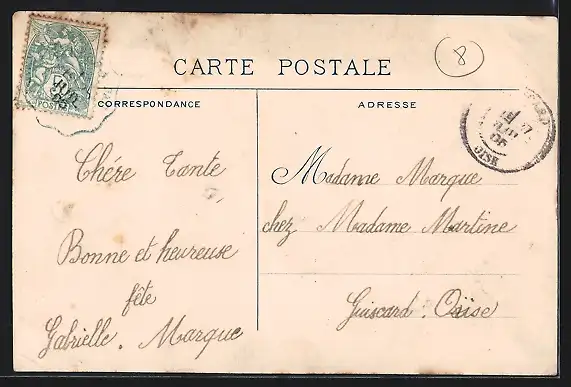 8
CARTE POSTALE
CORRESPONDANCE
ADRESSE
Chére Tante
Bonne et heureuse
fête
Gabrielle. Marque
Madame Marque
chez Madame Martine
Guiscard. Oïse
POSTES
OISE